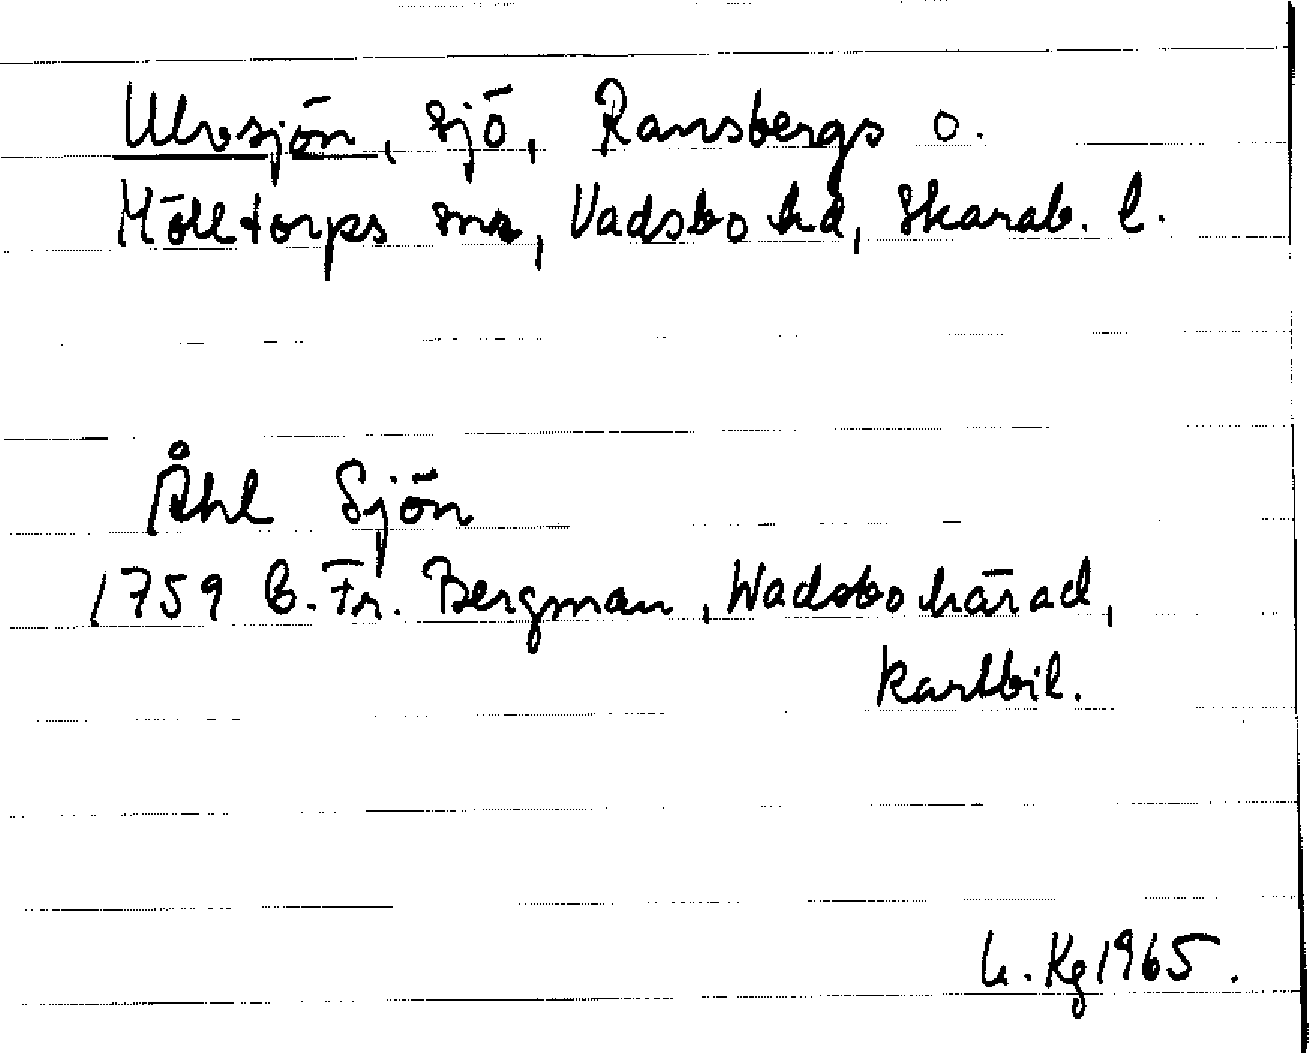 Ulvsjön, sjö, Ransbergs o.
Mölltorps snr, Vadsbo hd, Skarab. l.
Åhl Sjön
1759 B. Fr. Bergman, Wadsbo härad,
kartbil.
L. Kg 1965.